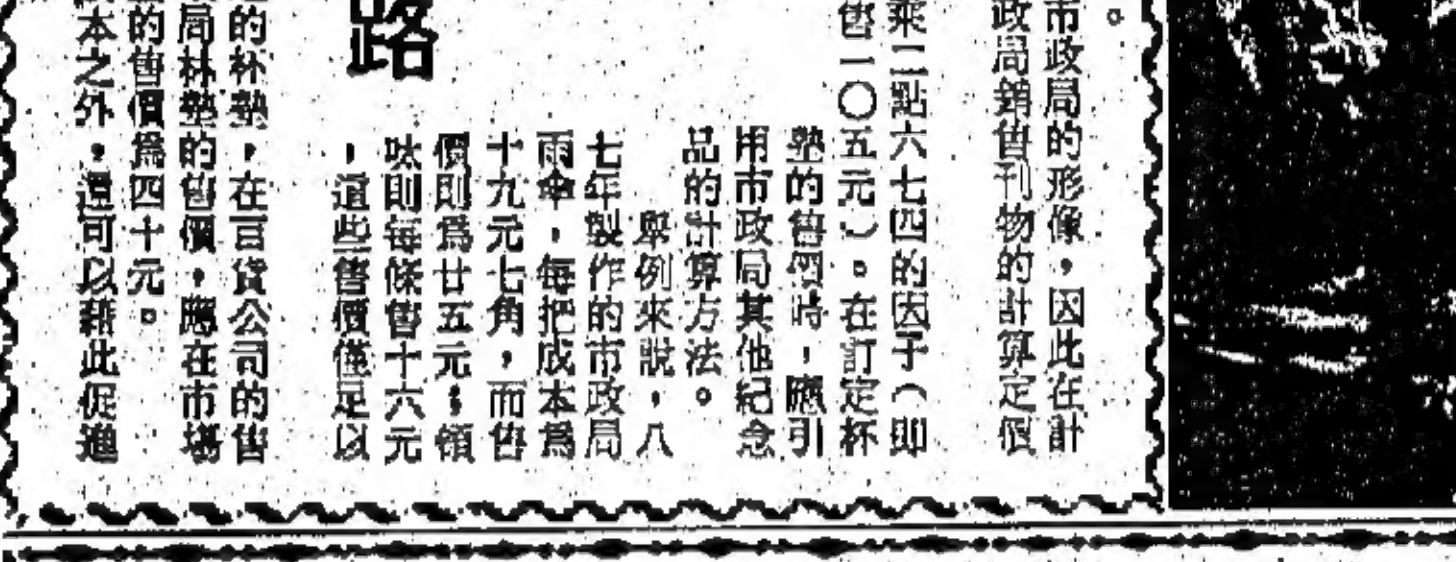 。
市政局的形像，因此在計
政局銷售刊物的計算定價
乘二點六七四的因子（即
售一〇五元）。在訂定杯
墊的售價時，應引
用市政局其他紀念
品的計算方法。
舉例來說，八
七年製作的市政局
雨傘，每把成本為
十九元七角，而售
價則為廿五元；領
呔則每條售十六元
，這些售價僅足以
路
的杯墊，在百貨公司的售
局杯墊的售價，應在市場
的售價為四十元。
本之外，還可以藉此促進